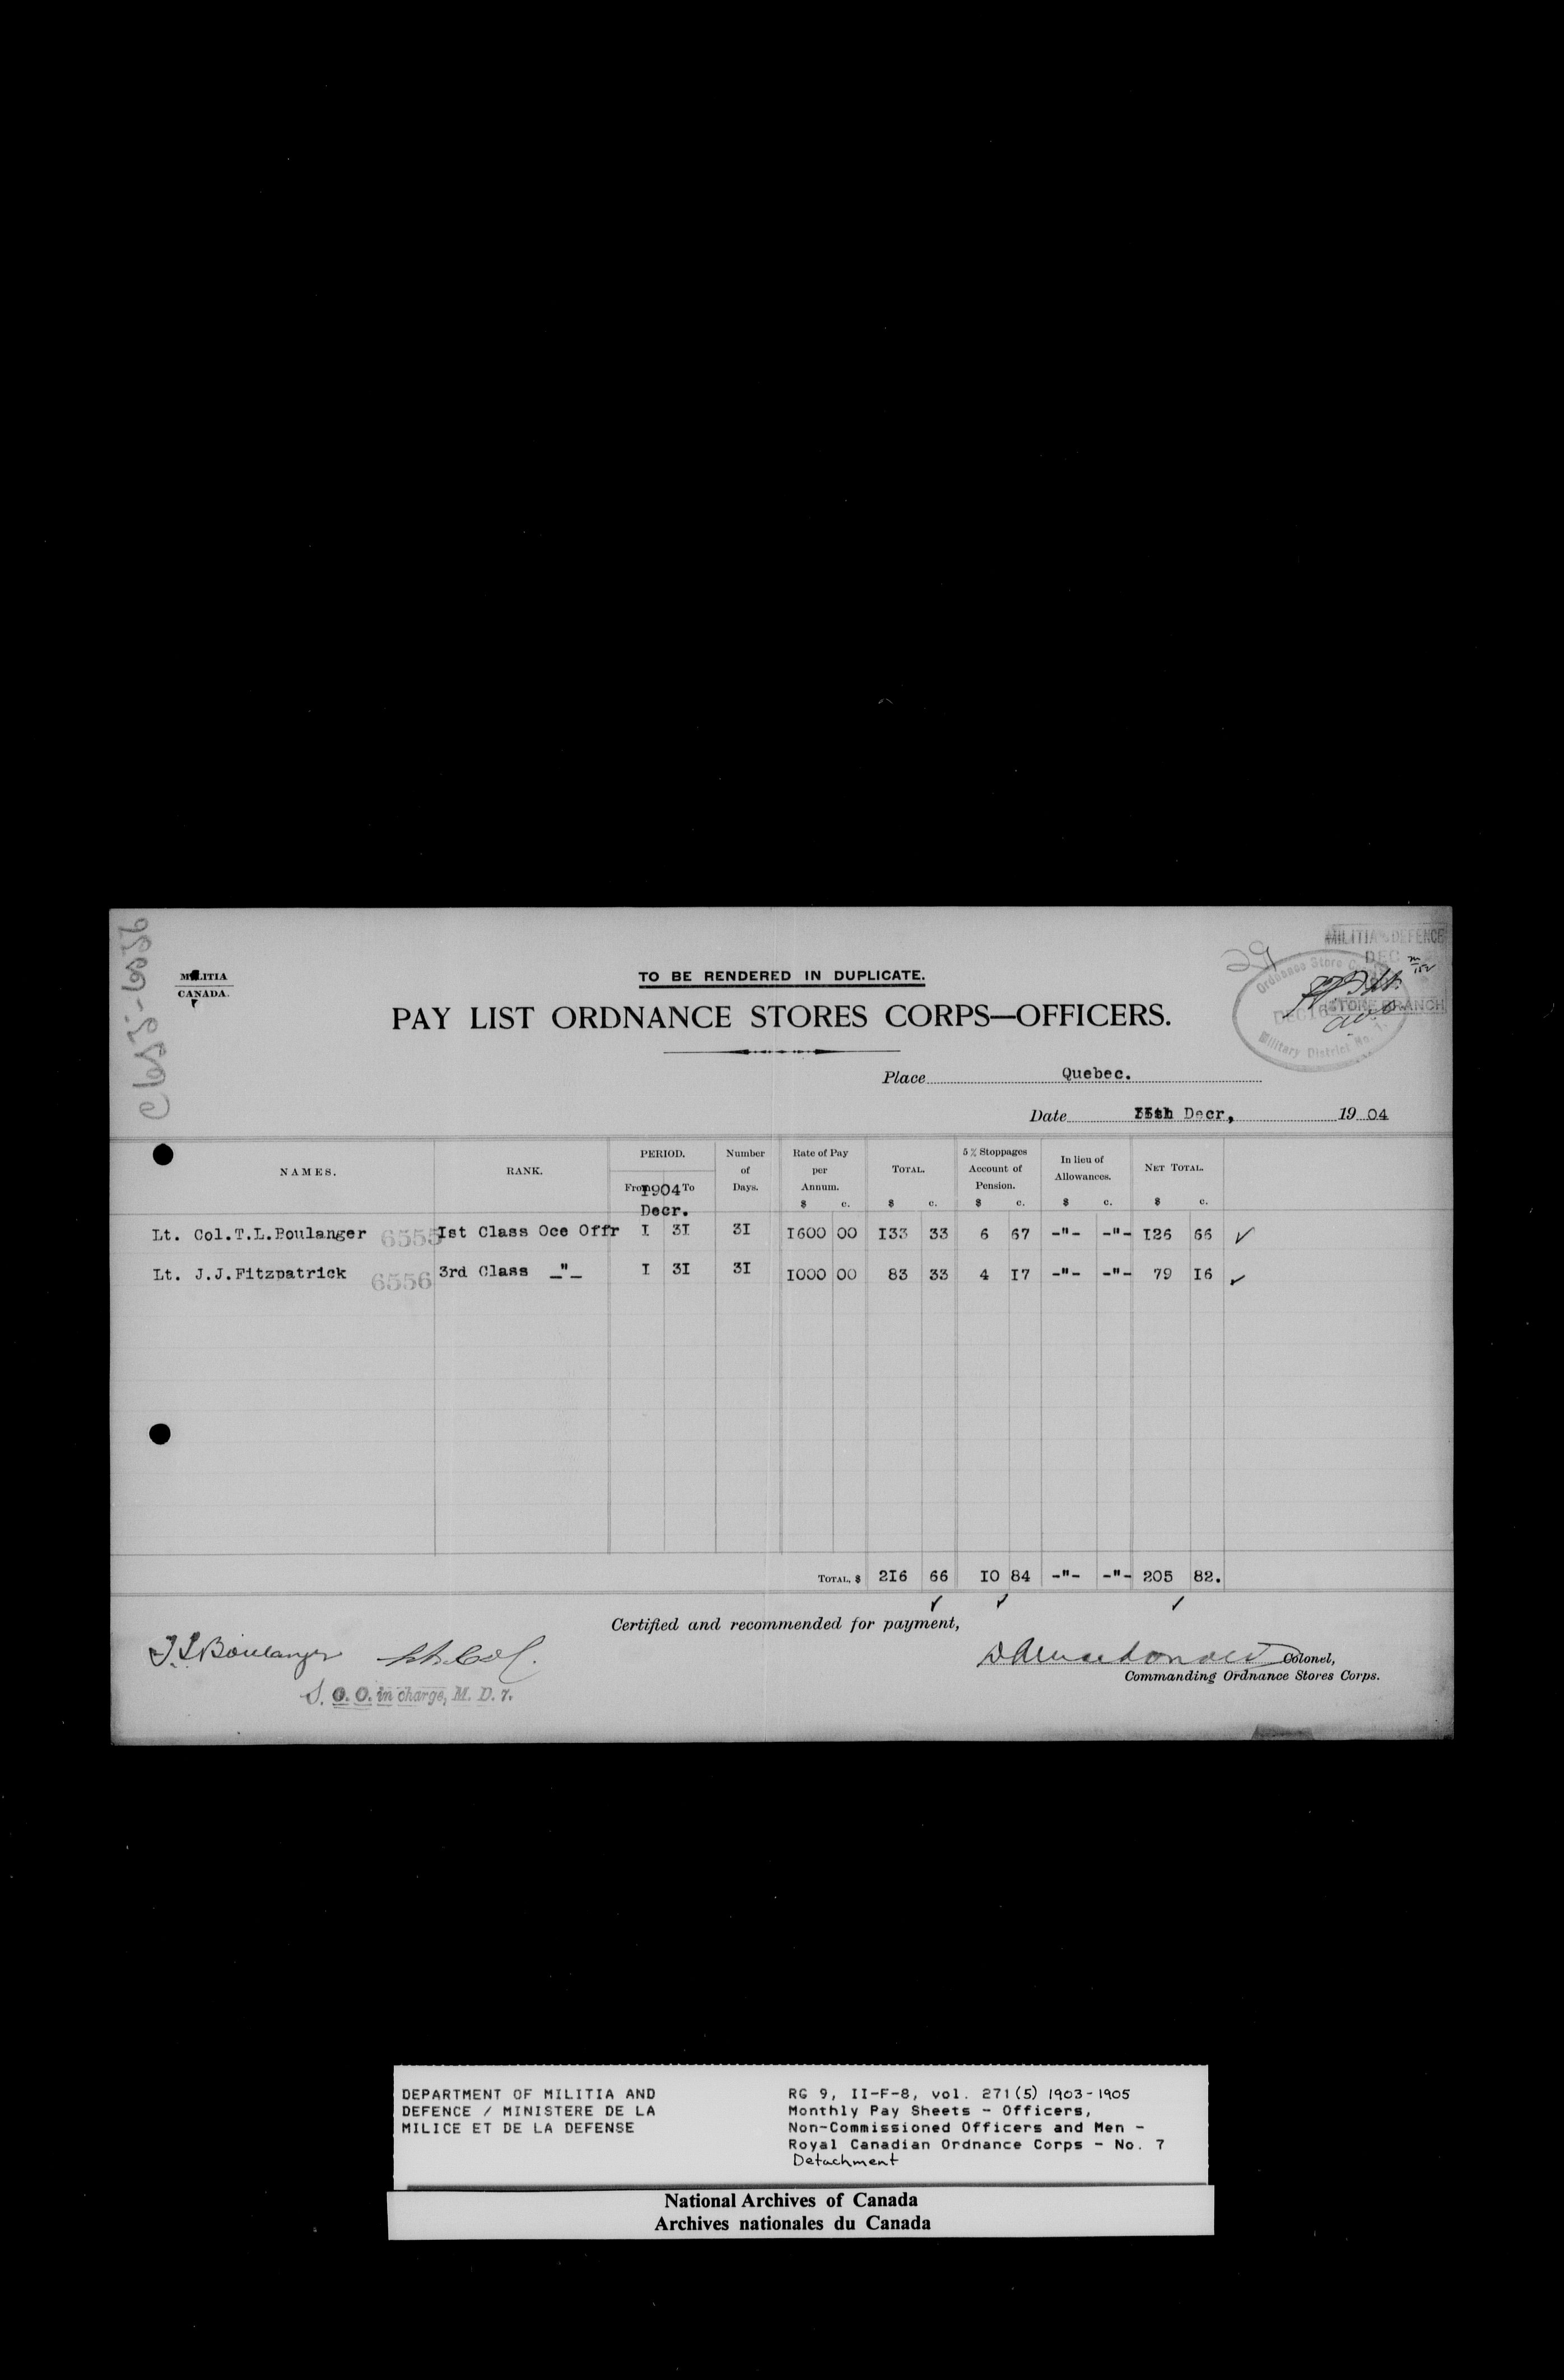 C 6555-6556
MILITIA
CANADA.
7
TO BE RENDERED IN DUPLICATE.
PAY LIST ORDNANCE STORES CORPS—OFFICERS.
29
MILITIA & DEFENCE
DEC
STORE BRANCH
Ordnance Store
DEC 16
Military District No. 7.
Place Quebec.
Date 15th Decr, 1904
NAMES. RANK. PERIOD. Number of Days. Rate of Pay per Annum. TOTAL. 5 % Stoppages Account of Pension. In lieu of Allowances. NET TOTAL.
From To
1904
Decr.
$ c. $ c. $ c. $ c. $ c.
Lt. Col.T.L.Boulanger 6555 Ist Class Oce Offr I 3I 3I I600 00 I33 33 6 67 -"- -"- I26 66 ✓
Lt. J.J.Fitzpatrick 6556 3rd Class _"_ I 3I 3I I000 00 83 33 4 I7 -"- -"- 79 I6 ✓
TOTAL, $ 2I6 66 I0 84 -"- -"- 205 82.
✓ ✓ ✓
Certified and recommended for payment,
T.L. Boulanger Lt. Col.
S. O. O. in charge, M. D. 7.
D A Macdonald Colonel,
Commanding Ordnance Stores Corps.
DEPARTMENT OF MILITIA AND
DEFENCE / MINISTERE DE LA
MILICE ET DE LA DEFENSE
RG 9, II-F-8, vol. 271(5) 1903-1905
Monthly Pay Sheets - Officers,
Non-Commissioned Officers and Men -
Royal Canadian Ordnance Corps - No. 7
Detachment
National Archives of Canada
Archives nationales du Canada